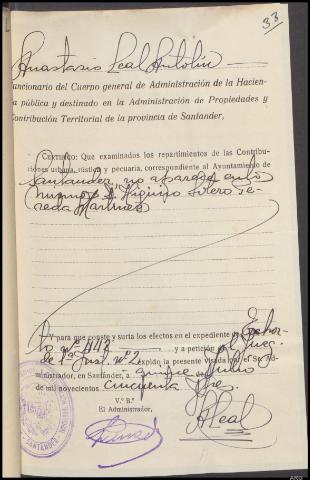 33
Anastasio Leal Antolín
Funcionario del Cuerpo general de Administración de la Hacien-
da pública y destinado en la Administración de Propiedades y
Contribución Territorial de la provincia de Santander,
CERTIFICO: Que examinados los repartimientos de las Contribu-
ciones urbana, rústica y pecuaria, correspondiente al Ayuntamiento de
Santander, no aparece
Martinez
Y para que conste y surta los efectos en el expediente de Exhor-
to nº 442 y a petición del Juzg.
de 1ª Inst. nº 2 expido la presente visada por el Sr. Ad-
ministrador, en Santander, a quince Julio
de mil novecientos cincuenta y tres.
V.º B.º
El Administrador,
ALeal
SANTANDER